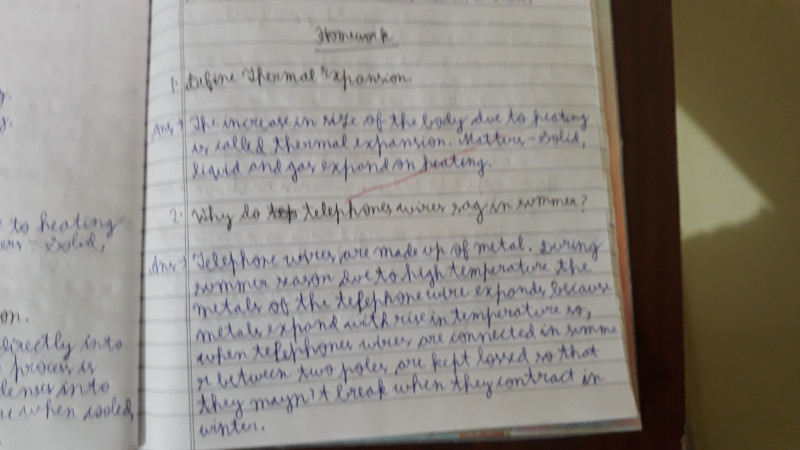 y.
y.
e to heating
ers - Solid,
on.
directly into
process is
denses into
u when cooled,
Homework
1. Define Thermal Expansion.
Ans → The increase in size of the body due to heating
is called thermal expansion. Matters - Solid,
liquid and gas expand on heating.
2. Why do telephones wires sag in summer?
Ans → Telephone wires are made up of metal. During
summer season due to high temperature the
metals of the telephone wire expands because
metals expand with rise in temperature so,
when telephones wires are connected in summe
r between two poles are kept lossed so that
they mayn't break when they contract in
winter.